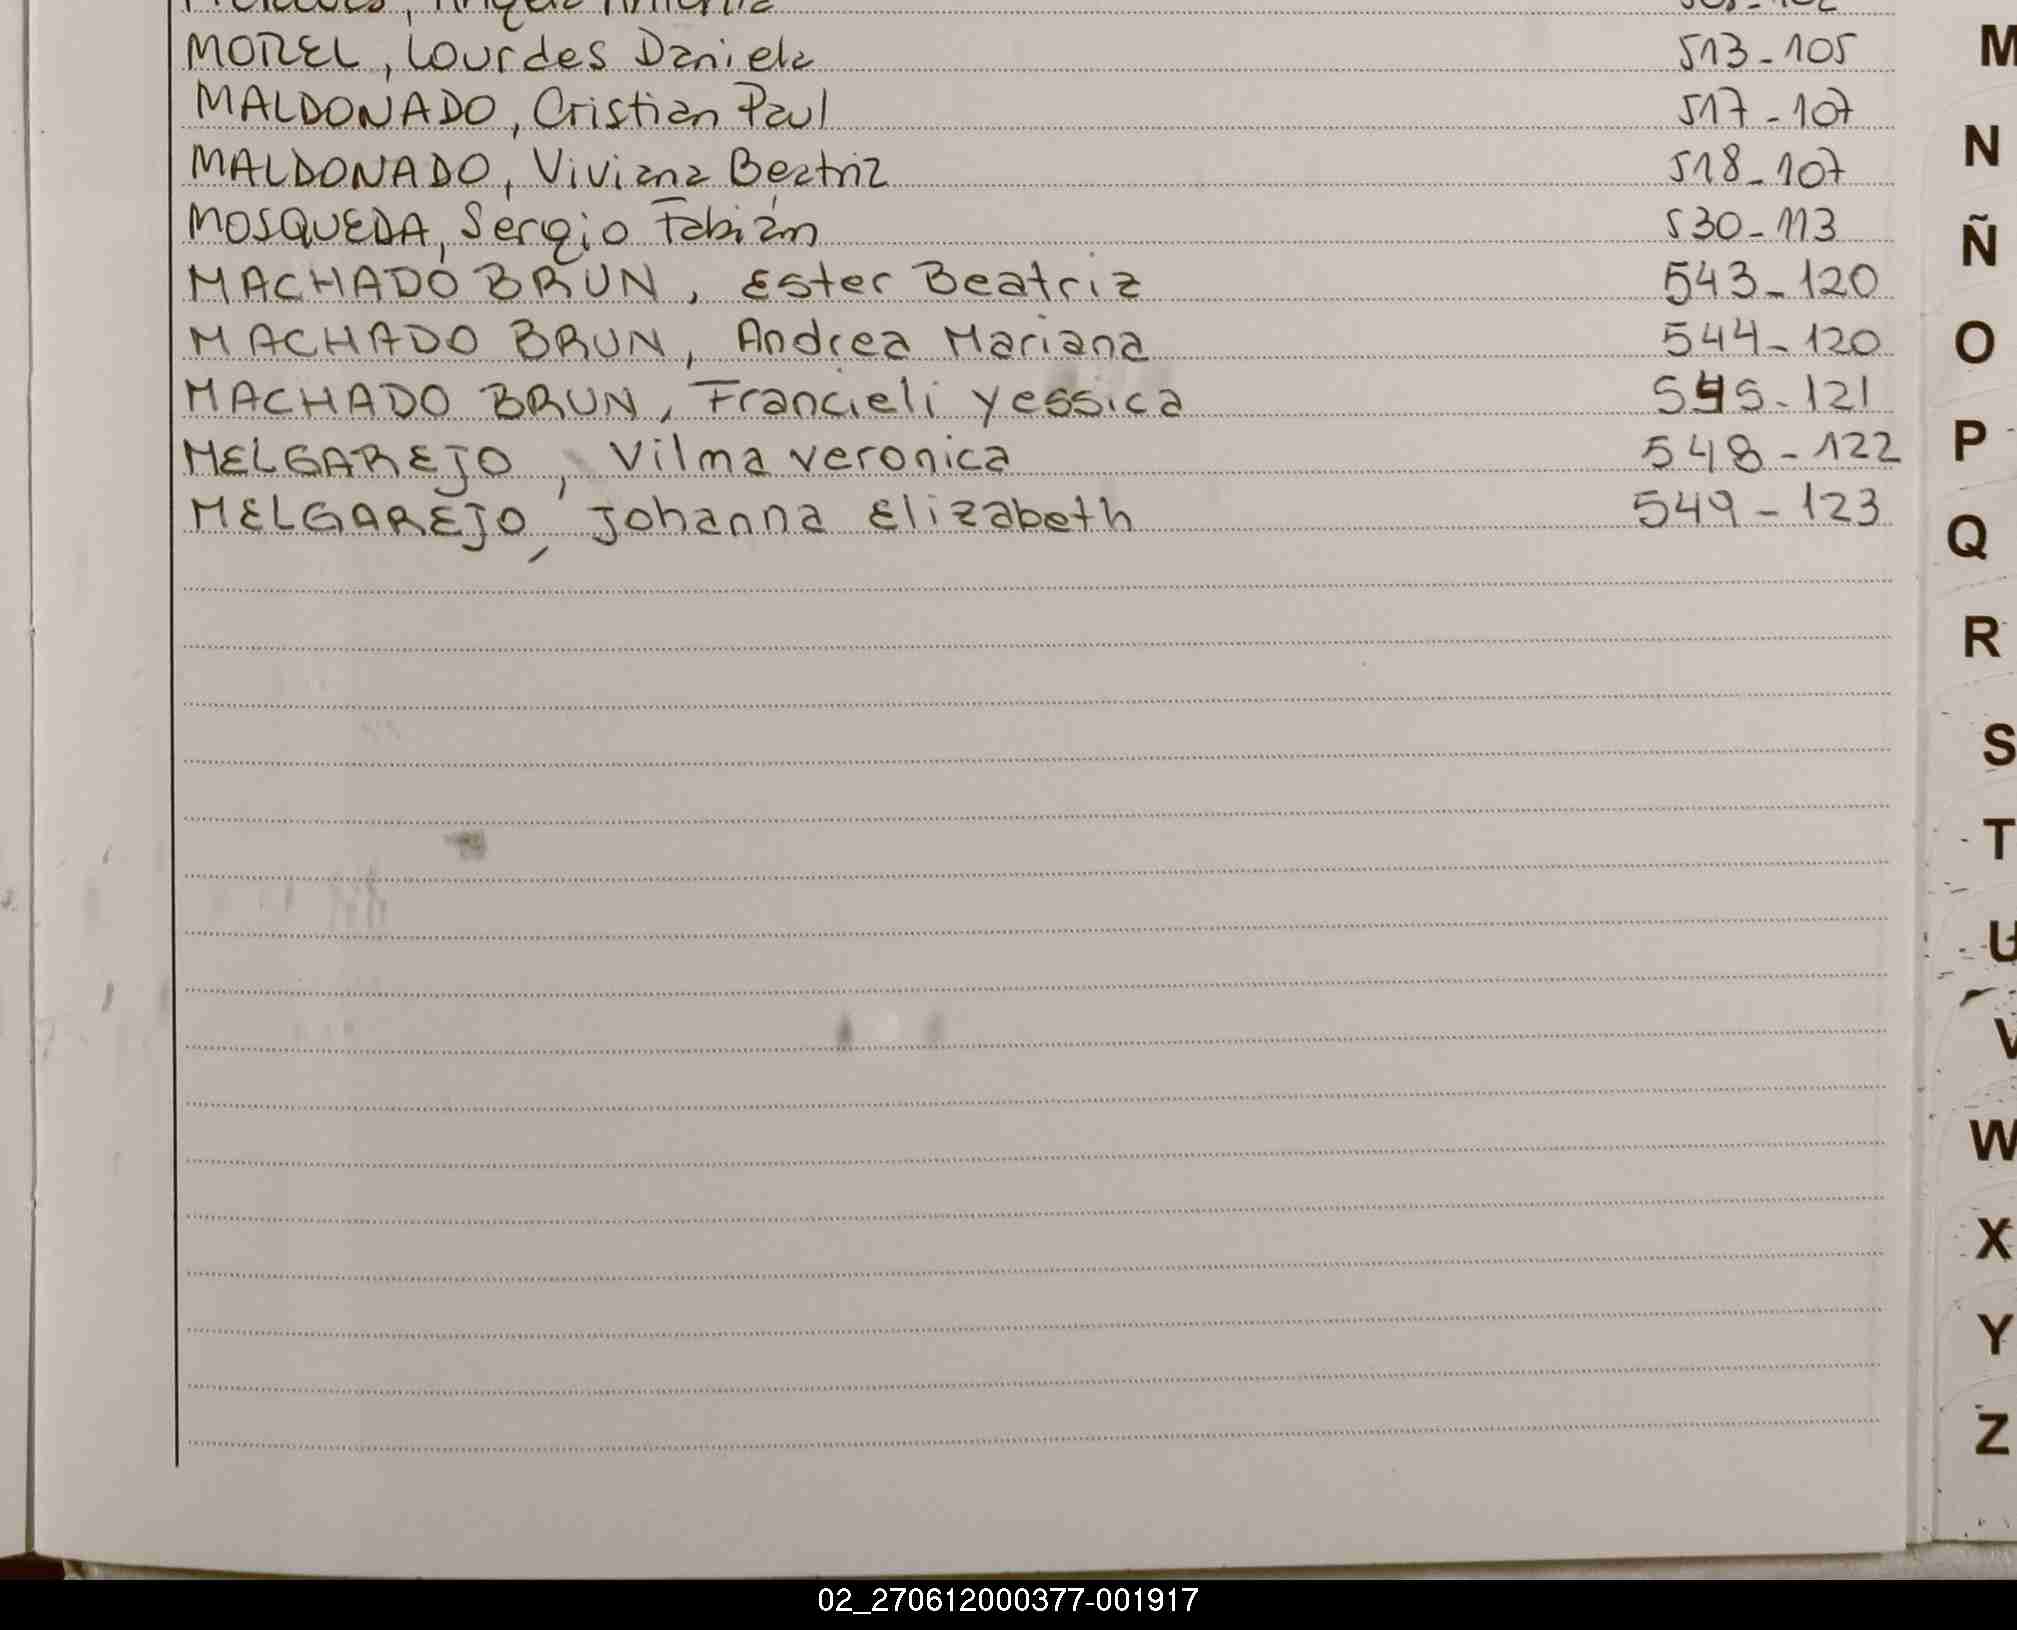 MOREL, Lourdes Daniela 513-105
MALDONADO, Cristian Paul 517-107
MALDONADO, Viviana Beatriz 518-107
MOSQUEDA, Sergio Fabián 530-113
MACHADO BRUN, Ester Beatriz 543-120
MACHADO BRUN, Andrea Mariana 544-120
MACHADO BRUN, Francieli Yessica 545-121
MELGAREJO, Vilma Veronica 548-122
MELGAREJO, Johanna Elizabeth 549-123
M
N
Ñ
O
P
Q
R
S
T
U
V
W
X
Y
Z
02_270612000377-001917